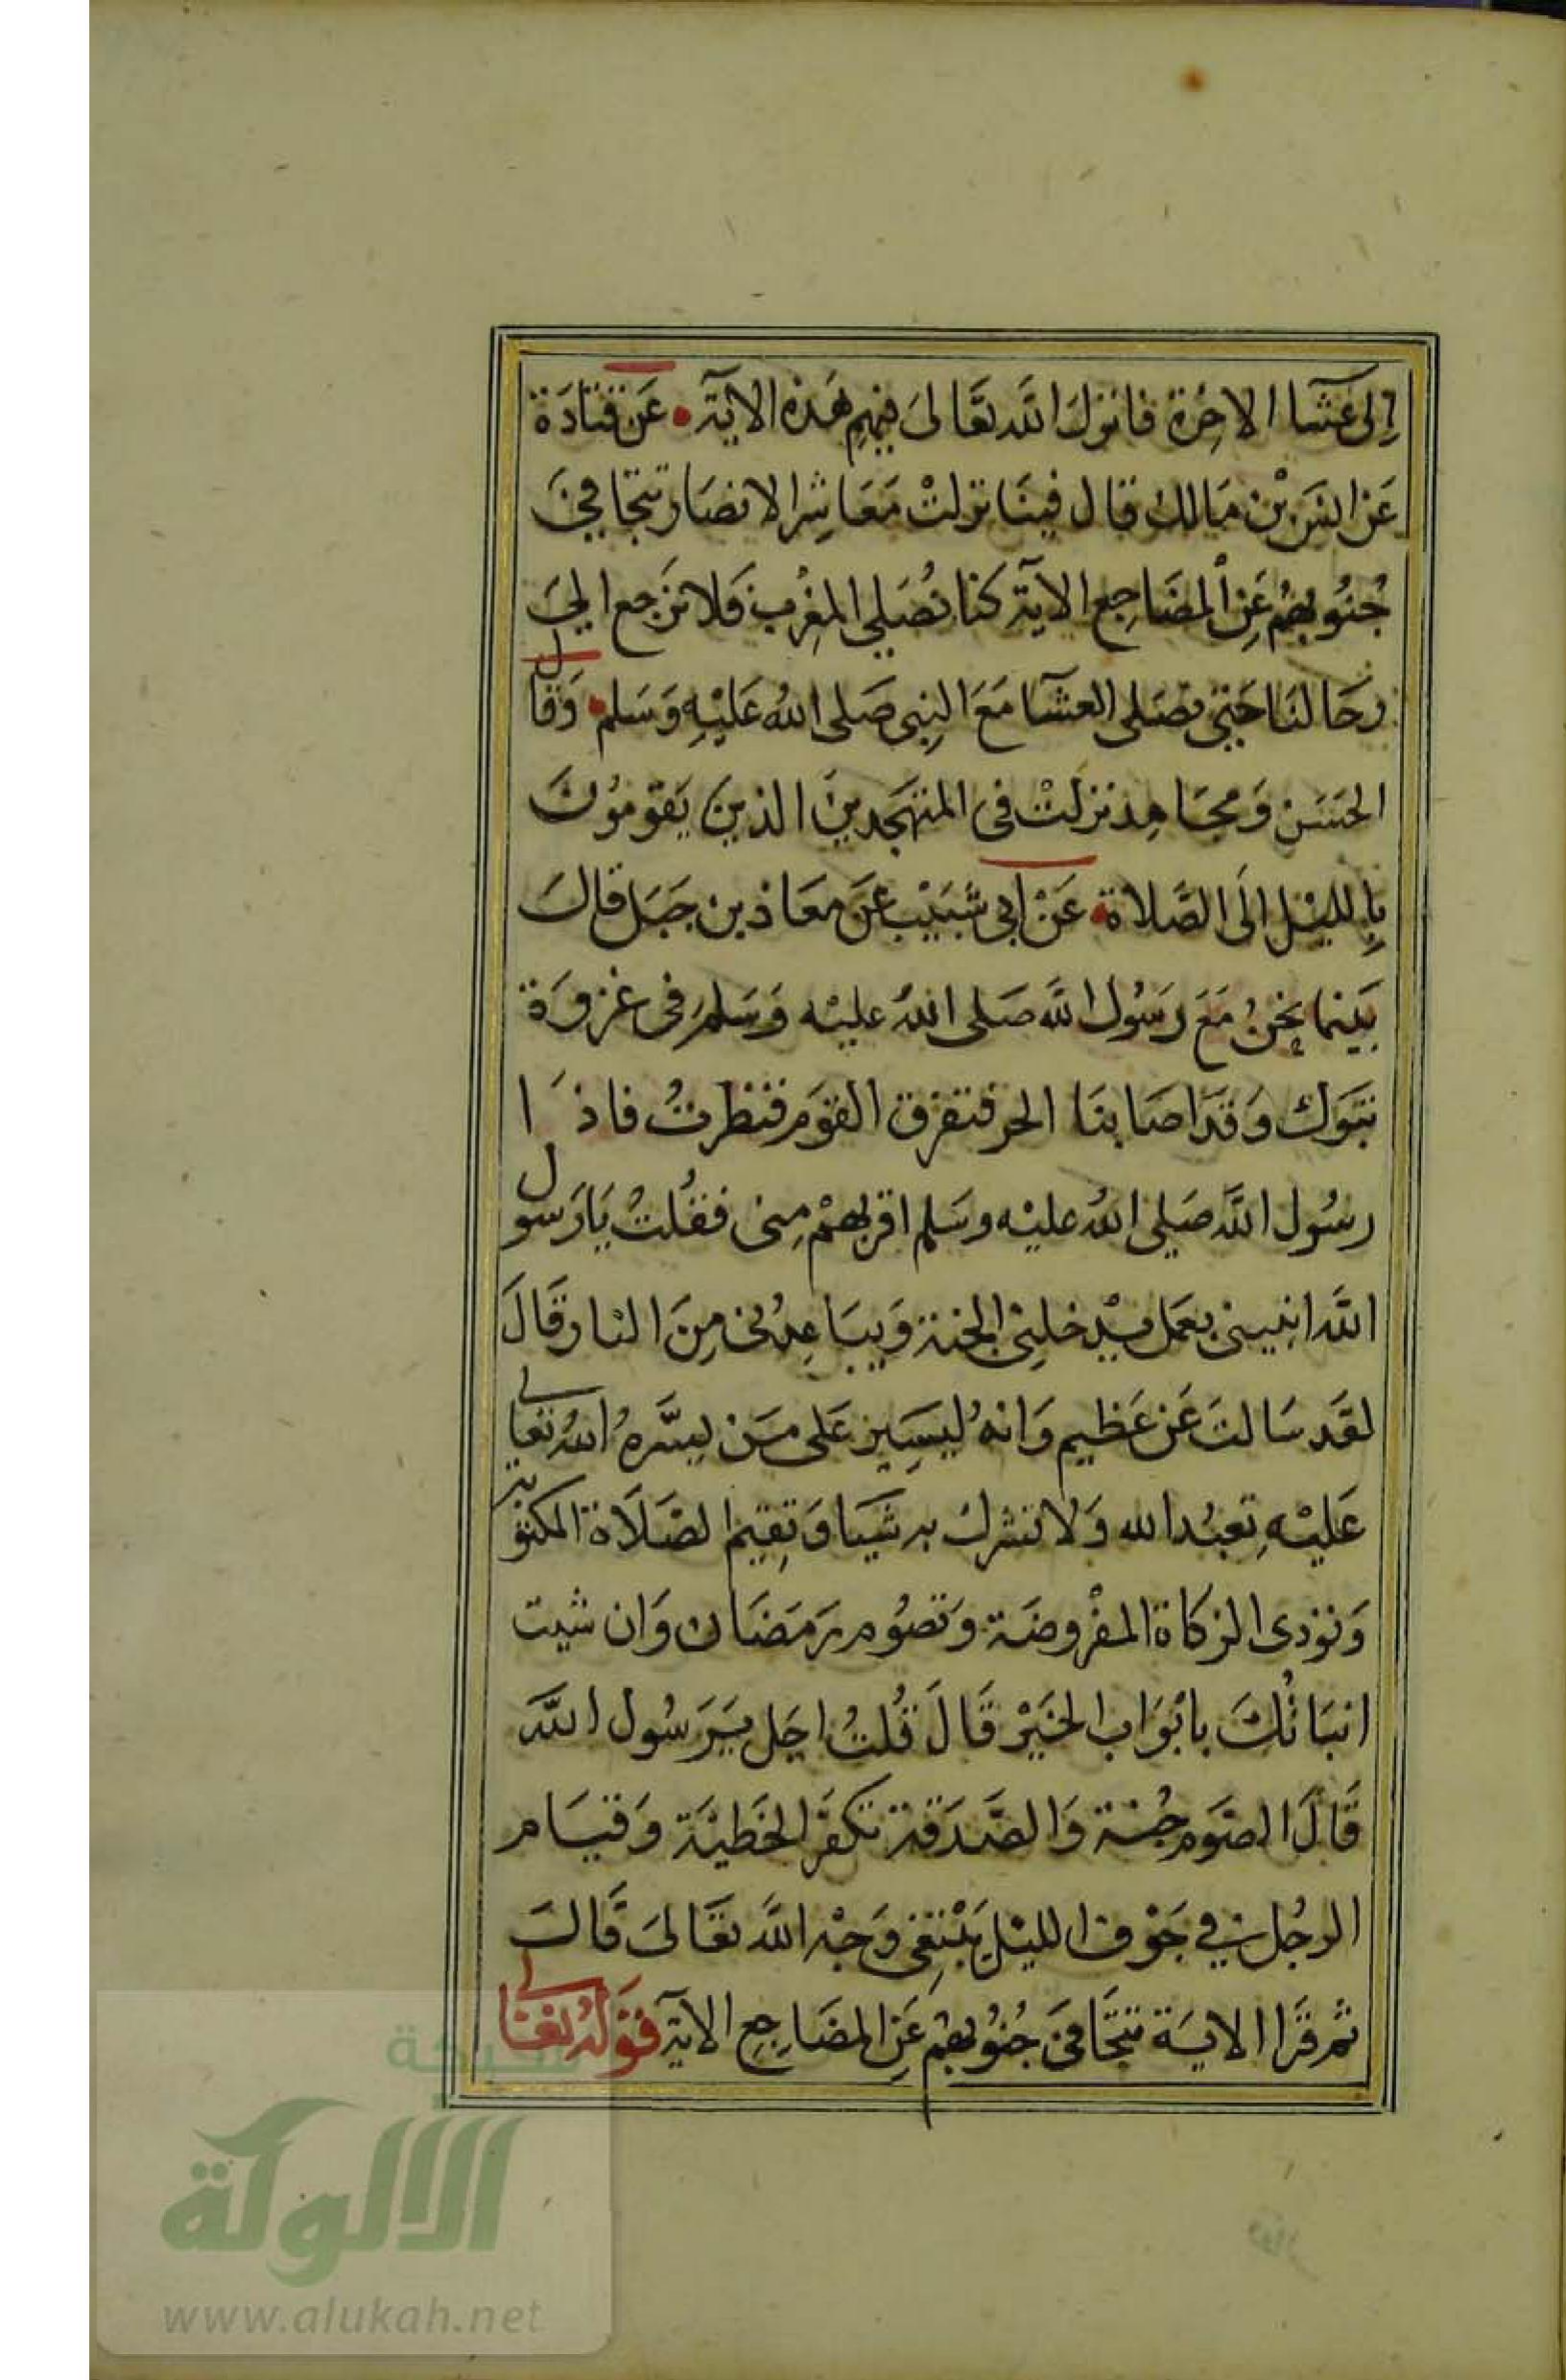 إلى عشآا الاخِرة فانزلَ اللّه تعَالىَ فيهِم هَذه الايَة • عَن قتادَة
عَن انسَ بْن مَالك قال فينَا نزلتْ مَعَاشِرا لانصَار تتجَافىَ
جُنُوبهُم عَنِ المضَاجِع الآية كنا نُصَلى المغِرب فَلا نرَجع الىَ
رحَالنَا حَتى نصَلى العشآ مَعَ النِبى صَلى اللهُ عَليْهِ وَسَلم • وَقال
الحسَنَ وَمجَاهِد نزلتْ فى المتهَجدينَ الذينَ يَقومُونَ
بِالليْل الَى الصَّلاة • عَنْ ابى شَبيْب عَن معَاذ بن جَبَل قالَ
بَينما نحَنُ مَعَ رَسُول اللّه صَلى اللهُ عليْه وَسَلم فى غزوَة
تبَوك وَقدَ اصَابنَا الحر فتفرق القوَم فنظرتُ فاذَا
رسُول اللَّه صَلى اللهُ عليْه وسَلم اقربهمُ مِنى فقُلتْ يَارَسول
اللَّه انبينى بعَمل يدْخلنِى الجنة وَيبَاعِدُنى مِنَ النار قَالَ
لقَد سَالتَ عَن عَظيم وَانهُ ليَسِير عَلى مَن يسَّرهُ اللهُ تعَالى
عَليْهِ تعبُد الله وَلا تشرك به شيَا وَتقِيم الصَلَاة المكتوبة
وَتؤدى الزكاة المفْروضَة وَتصُوم رَمَضَان وَان شيت
انبَاتُكَ بابْوَاب الخيَرْ قَالَ قُلتُ اجَل يَرَسُول اللَّه
قَالَ الصَوم جُنة وَالصَّدَقة تكفرّ الخَطيَة وَقيَام
الرجُل فى جَوْف الليْل يَبْتغِى وَجْه اللَّه تعَالىَ قَالَ
ثم قرَا الايَة تتجَافىَ جُنُوبهمُ عَنِ المضَاجِع الآية قوَلهُ تعَالى
شبكة
الألوكة
www.alukah.net